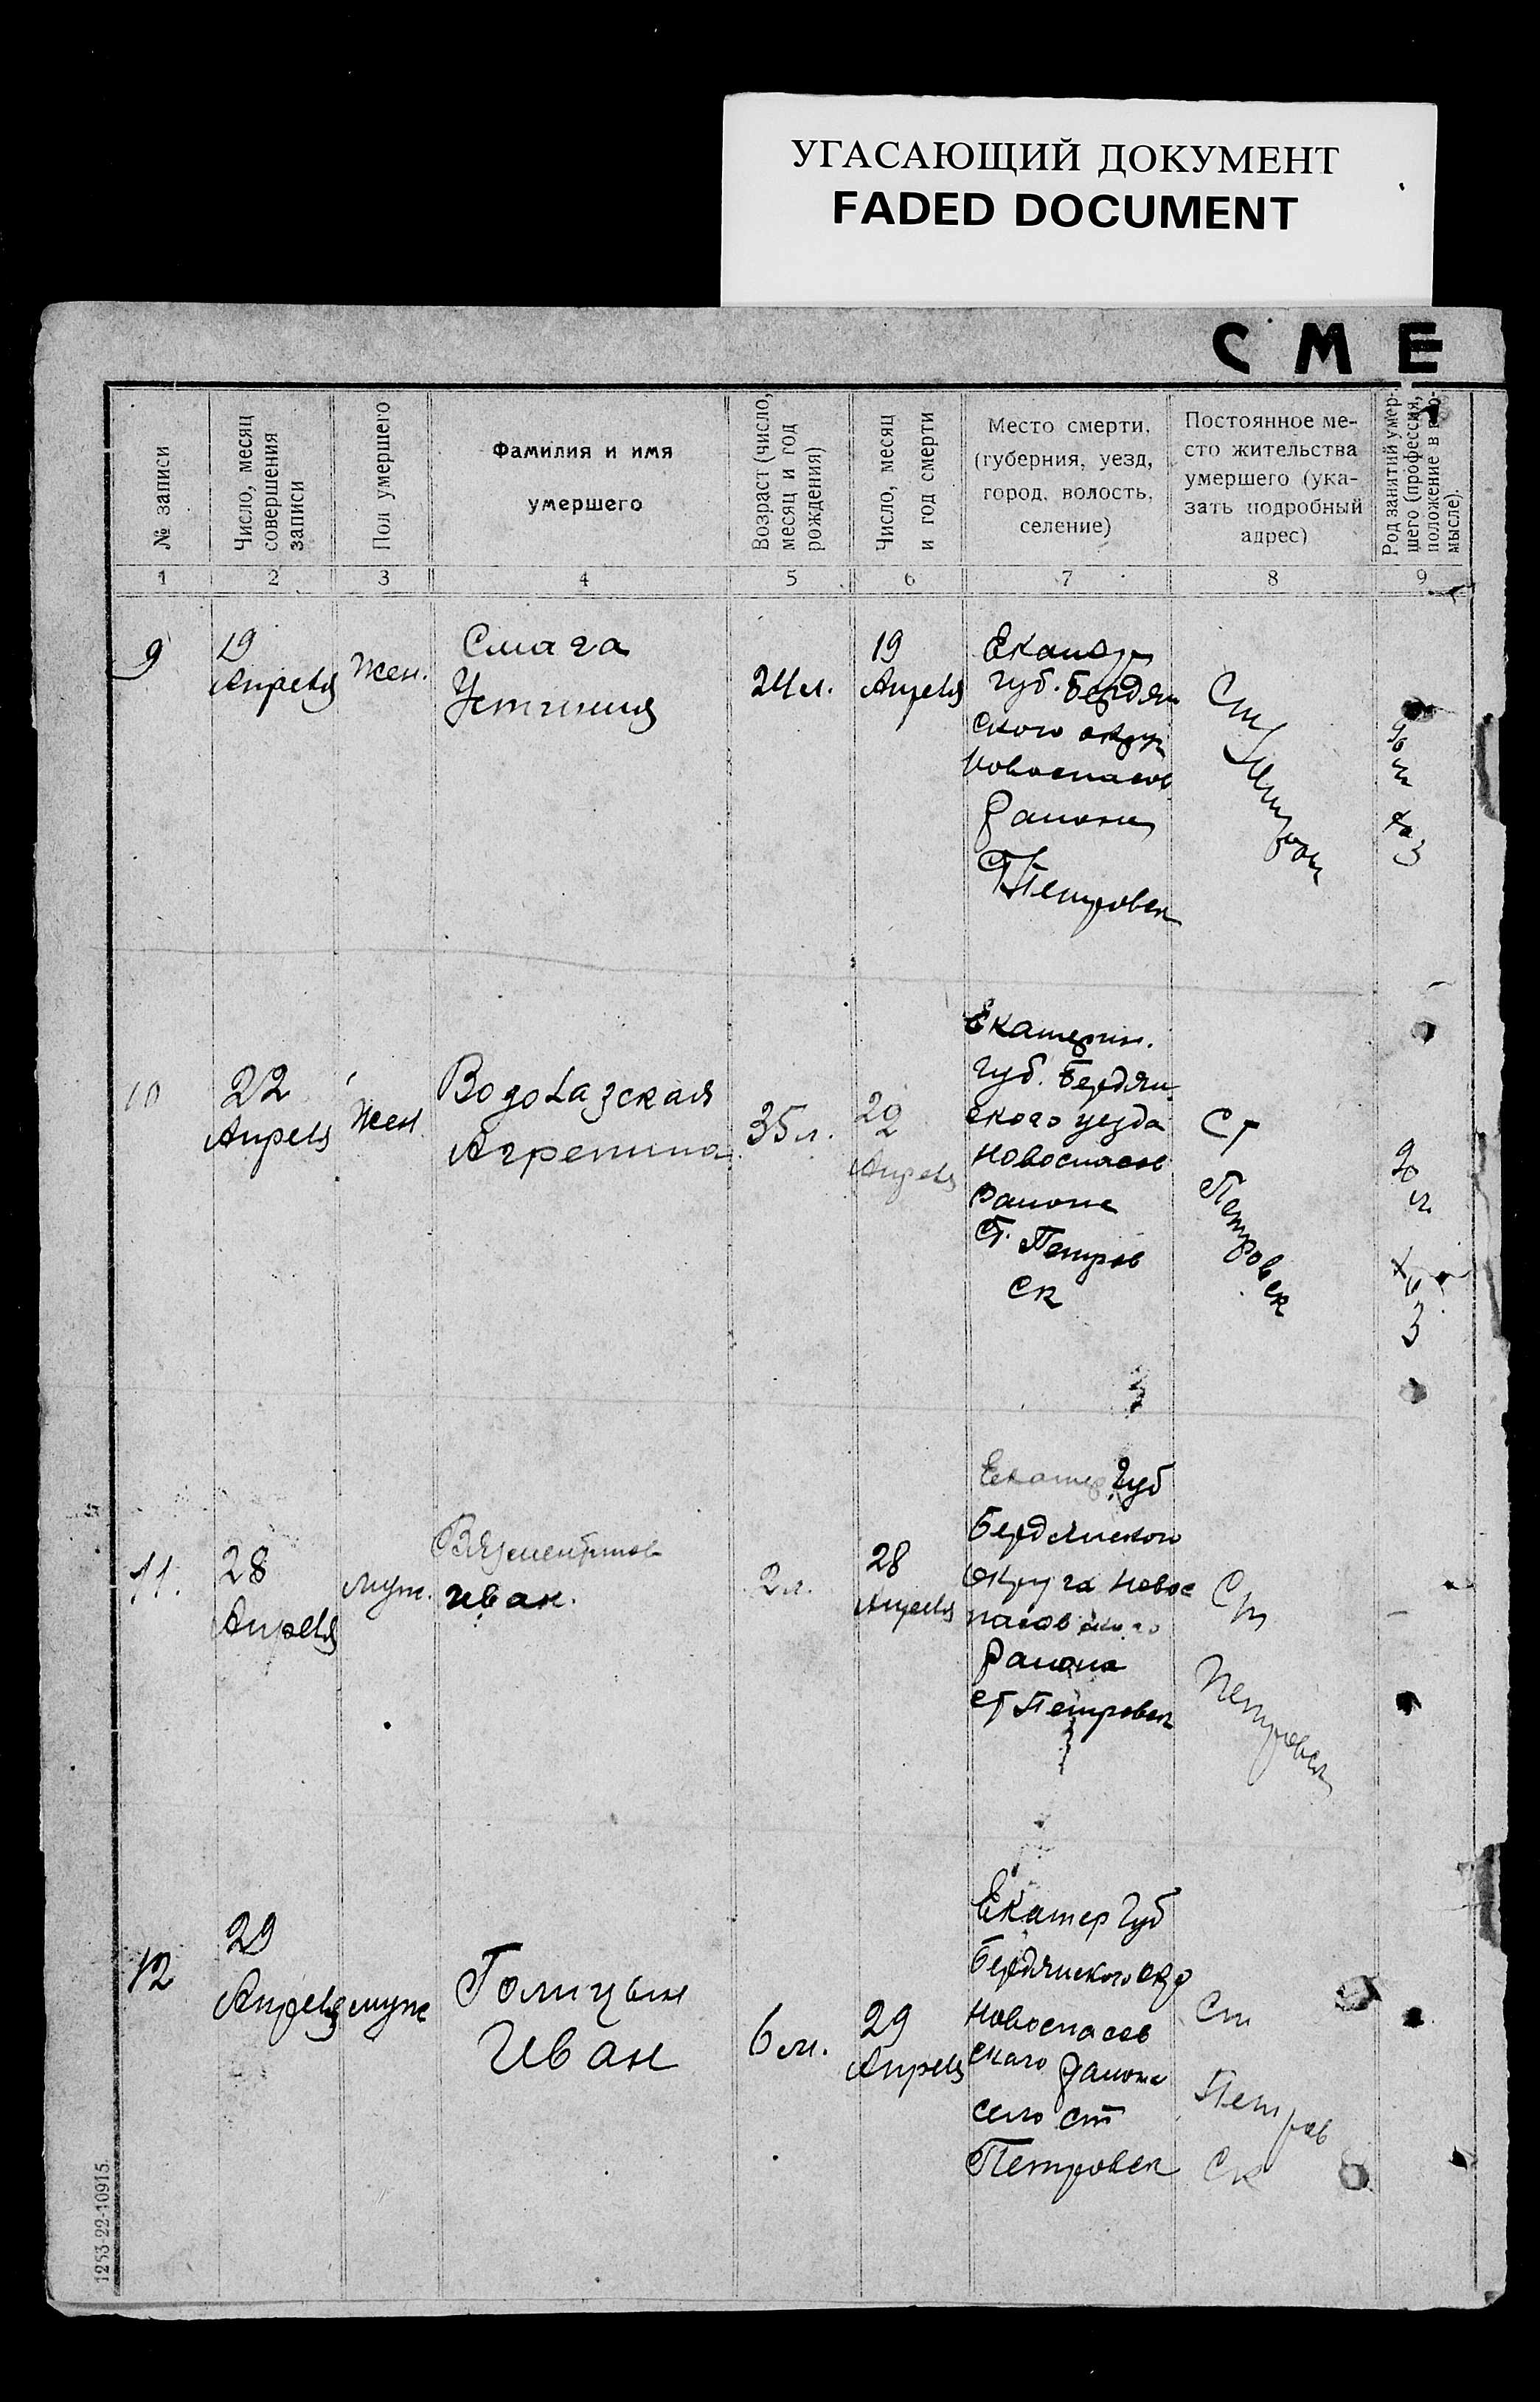 УГАСАЮЩИЙ ДОКУМЕНТ
FADED DOCUMENT
СМЕ
№ записи
Число, месяц
совершения
записи
Пол умершего
Фамилия и имя
умершего
Возраст (число,
месяц и год
рождения)
Число, месяц
и год смерти
Место смерти,
(губерния, уезд,
город, волость,
селение)
Постоянное ме-
сто жительства
умершего (ука-
зать подробный
адрес)
Род занятий умер-
шего (профессия,
положение в
мысле).
1 2 3 4 5 6 7 8 9
9
19
Апреля
Жен.
Смага
Устиния
24 л.
19
Апреля
губ. Бердян
ского
Новоспасов
Района
Ст Петровск
Ст
10
22
Апреля
Жен.
Водолазская
Агрепина
35 л.
22
Апреля
Екатерин.
губ. Бердян
ского уезда
Новоспасов
Района
Ст. Петров
ск
Ст
Петровск
11.
28
Апреля
муж.
Иван.
2 л.
28
Апреля
Екатер губ
Бердянского
округа Новос
пасовского
Района
ст Петровск
Ст
Петровск
12
29
Апреля
муж
Голицын
Иван
6 м.
29
Апреля
Екатер губ
Бердянского окр
Новоспасов
ского Района
село ст
Петровск
Ст
Петров
ск
1253-22-10915.